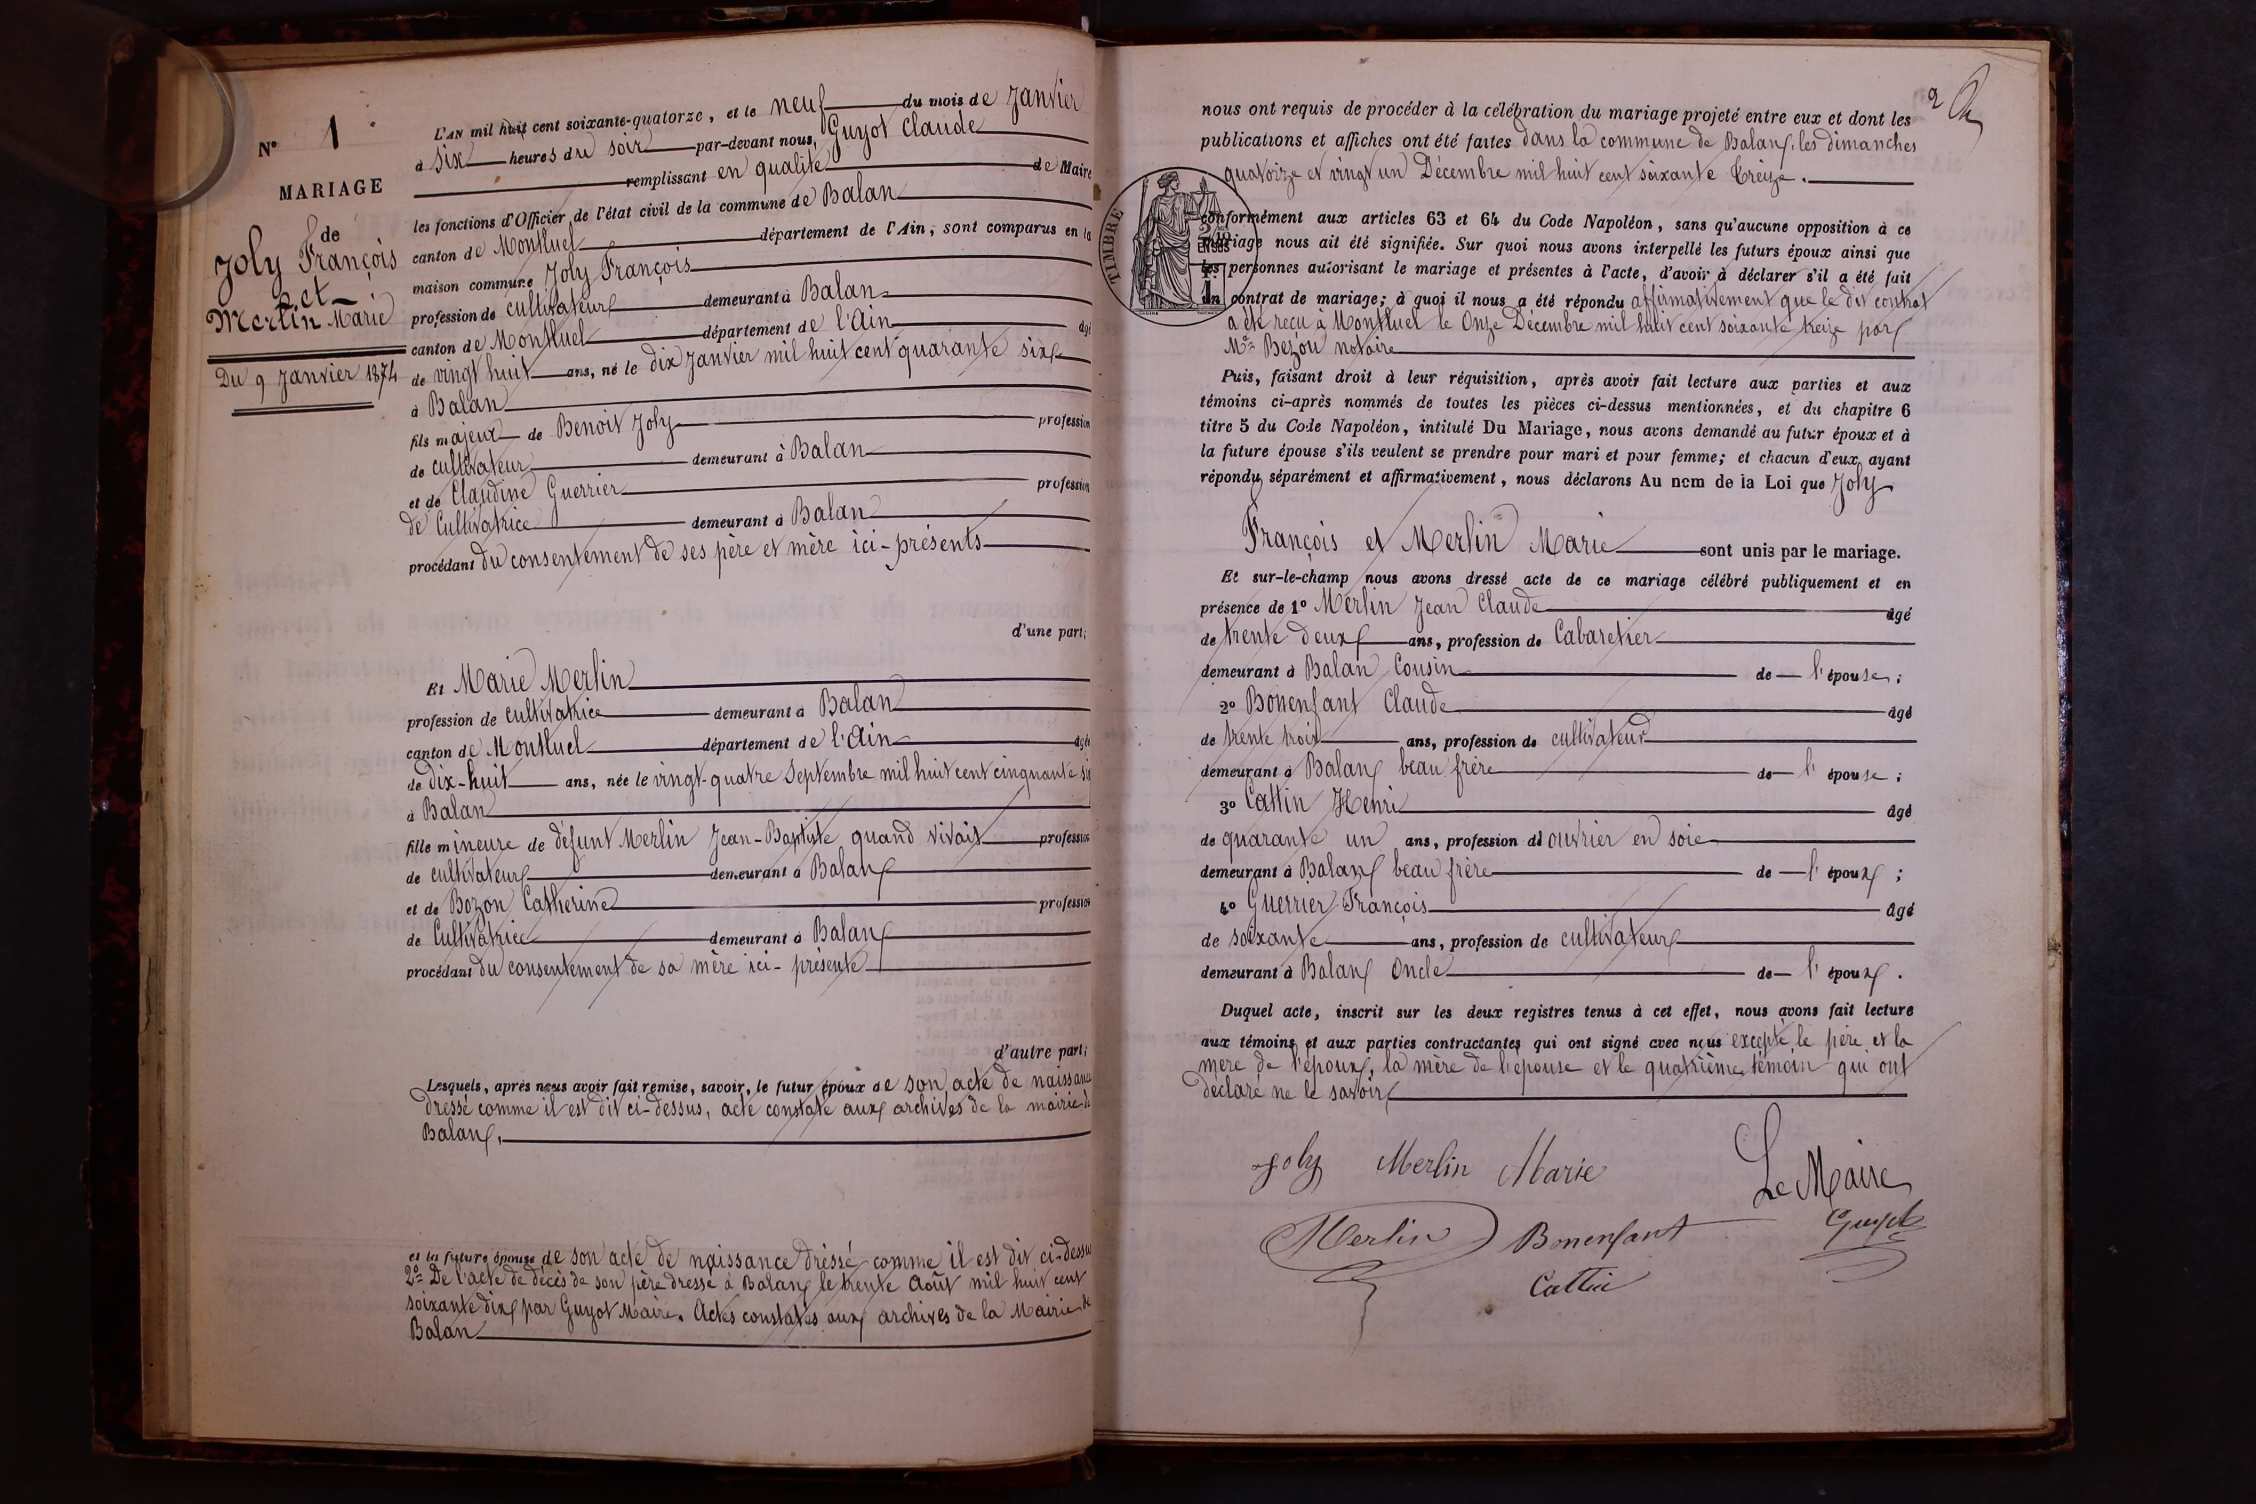 N° 1
MARIAGE
de
Joly François
et
Merlin Marie
Du 9 Janvier 1874
L'AN mil huit cent soixante-quatorze, et le neuf du mois de Janvier
à six heures du soir par-devant nous, Guyot Claude
remplissant en qualité de Maire
les fonctions d'Officier de l'état civil de la commune de Balan
canton de Montluel département de l'Ain, sont comparus en la
maison commune Joly François
profession de cultivateur demeurant à Balan
canton de Montluel département de l'Ain âgé
de vingt huit ans, né le dix Janvier mil huit cent quarante six
à Balan
fils majeur de Benoit Joly profession
de cultivateur demeurant à Balan
et de Claudine Guerrier profession
de Cultivatrice demeurant à Balan
procédant du consentement de ses père et mère ici-présents
d'une part;
Et Marie Merlin
profession de cultivatrice demeurant à Balan
canton de Montluel département de l'Ain âgée
de dix-huit ans, née le vingt-quatre Septembre mil huit cent cinquante six
à Balan
fille mineure de défunt Merlin Jean-Baptiste quand vivait profession
de cultivateur demeurant à Balan
et de Bozon Catherine profession
de Cultivatrice demeurant à Balan
procédant du consentement de sa mère ici-présente
d'autre part;
Lesquels, après nous avoir fait remise, savoir, le futur époux de son acte de naissance
dressé comme il est dit ci-dessus, acte constaté aux archives de la mairie de
Balan.
et la future épouse de son acte de naissance dréssé comme il est dit ci-dessus
2° De l'acte de décès de son père dressé à Balan le trente Août mil huit cent
soixante dix par Guyot Maire. Actes constatés aux archives de la Mairie de
Balan
2
nous ont requis de procéder à la célébration du mariage projeté entre eux et dont les
publications et affiches ont été faites dans la commune de Balan, les dimanches
quatorze et vingt un Décembre mil huit cent soixante treize.
TIMBRE
conformément aux articles 63 et 64 du Code Napoléon, sans qu'aucune opposition à ce
mariage nous ait été signifiée. Sur quoi nous avons interpellé les futurs époux ainsi que
les personnes autorisant le mariage et présentes à l'acte, d'avoir à déclarer s'il a été fait
un contrat de mariage; à quoi il nous a été répondu affirmativement que le dit contrat
a été reçu à Montluel le Onze Décembre mil huit cent soixante treize par
Me Bezou notaire
Puis, faisant droit à leur réquisition, après avoir fait lecture aux parties et aux
témoins ci-après nommés de toutes les pièces ci-dessus mentionnées, et du chapitre 6
titre 5 du Code Napoléon, intitulé Du Mariage, nous avons demandé au futur époux et à
la future épouse s'ils veulent se prendre pour mari et pour femme; et chacun d'eux ayant
répondu séparément et affirmativement, nous déclarons Au nom de la Loi que Joly
François et Merlin Marie sont unis par le mariage.
Et sur-le-champ nous avons dressé acte de ce mariage célébré publiquement et en
présence de 1° Merlin Jean Claude âgé
de trente deux ans, profession de Cabaretier
demeurant à Balan Cousin de l'épouse;
2° Bonenfant Claude âgé
de trente trois ans, profession de cultivateur
demeurant à Balan beau frère de l'épouse;
3° Cattin Henri âgé
de quarante un ans, profession d'ouvrier en soie
demeurant à Balan beau frère de l'époux;
4° Guerrier François âgé
de soixante ans, profession de cultivateur
demeurant à Balan Oncle de l'époux.
Duquel acte, inscrit sur les deux registres tenus à cet effet, nous avons fait lecture
aux témoins et aux parties contractantes qui ont signé avec nous excepté, le père et la
mère de l'époux, la mère de l'épouse et le quatrième témoin qui ont
déclaré ne le savoir
Joly Merlin Marie Le Maire
Merlin Bonenfant Guyot
Cattin